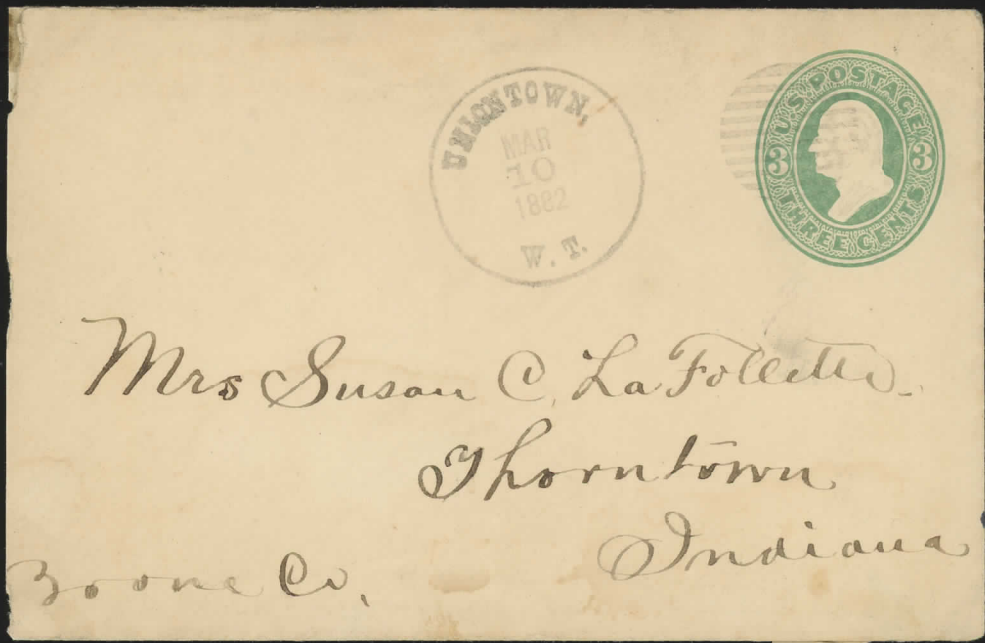 UNIONTOWN,
MAR
10
1882
W. T.
U.S. POSTAGE
3 3
THREE CENTS
Mrs Susan C. La Follette.
Thorntown
Indiana
Boone Co.